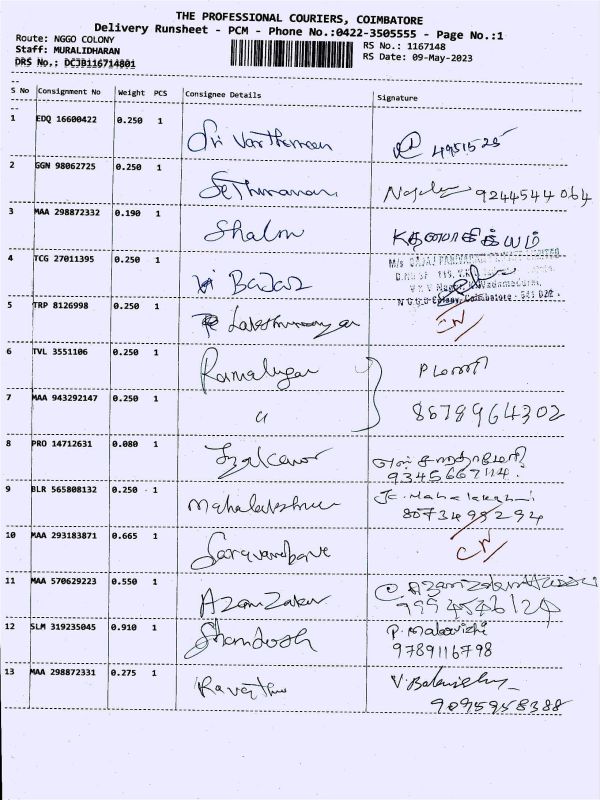 THE PROFESSIONAL COURIERS, COIMBATORE
Delivery Runsheet - PCM - Phone No.:0422-3505555 - Page No.:1
Route: NGGO COLONY
RS No.: 1167148
Staff: MURALIDHARAN
RS Date: 09-May-2023
DRS No.: DCJB116714801
S No Consignment No Weight PCS Consignee Details Signature
1 EDQ 16600422 0.250 1 Sri Varthomeen 4951525
2 GGN 98062725 0.250 1 Sethuraman 9244544064
3 MAA 298872332 0.190 1 Shalini
4 TCG 27011395 0.250 1 Bajaj
N G G O Colony, Coimbatore - 641 022.
5 TRP 8126998 0.250 1 CN
6 TVL 3551106 0.250 1 Ramalingam
7 MAA 943292147 0.250 1 " 8678964302
8 PRO 14712631 0.080 1
9345667114
9 BLR 565808132 0.250 1 Mahalakshmi
8073499294
10 MAA 293183871 0.665 1 CN
11 MAA 570629223 0.550 1 Azam Zaker
9994546124
12 SLM 319235045 0.910 1 Shandosh P. Malavizhi
9789116798
13 MAA 298872331 0.275 1
9095958388